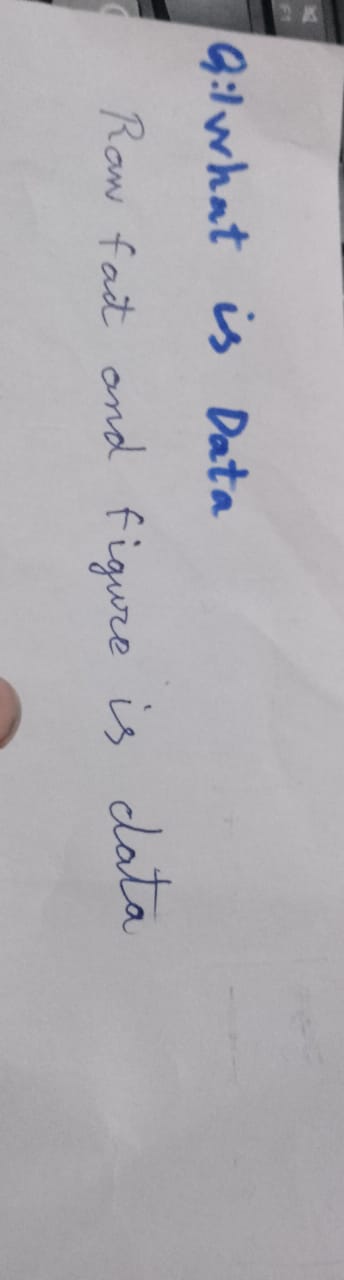 Q:1 What is Data
Raw fact and figure is data
F1